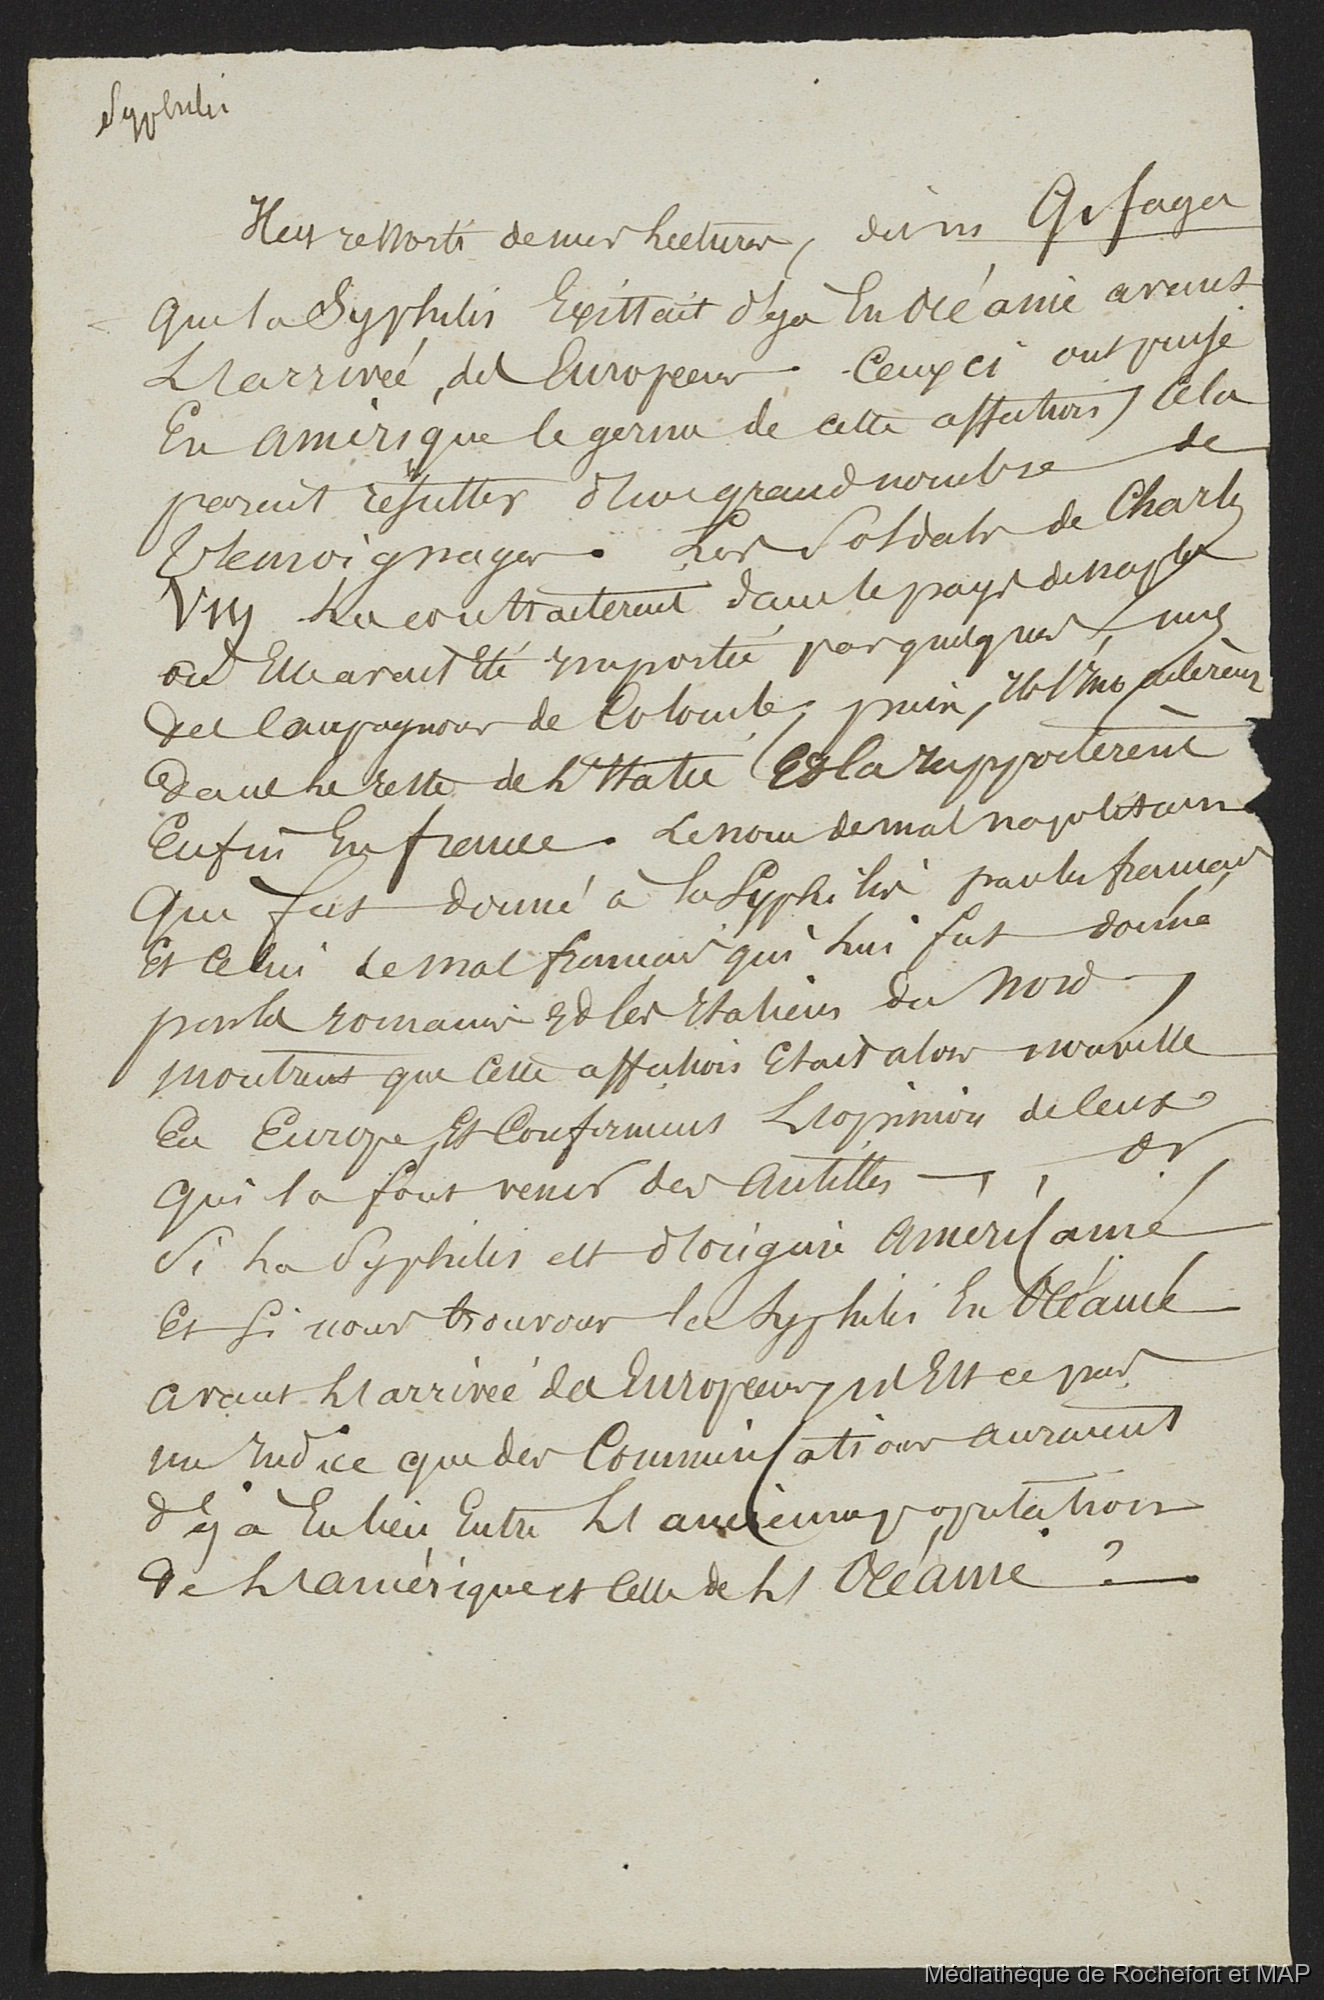 Syphilis
Il est ressorti de mes lectures, dis m
que la Syphilis Existait déja En Océanie avant
L'arrivée, des Européens. Ceux ci ont puisé
En amérique le germe de cette affection, cela
parait résulter d'un grand nombre de
témoignages. Les Soldats de Charles
VIII La contractèrent dans le pays de naples
où Elle avait Eté importée par quelques uns
des Compagnons de Colomb, puis, Ils l'inoculèrent
dans Le reste de L'Italie Et la rapportèrent
Enfin En france. Le nom de mal napolitain
Que fut donné à la Syphilis par les francais
Et Celui de mal francais qui Lui fut donné
par les romains Et les Italiens du Nord,
montrent que Cette affection Etait alors nouvelle
En Europe, Et Confirment L'opinion de Ceux
qui la font venir des Antilles — , , or
Si La Syphilis est d'origine Américaine
Et Si nous trouvons la Syphilis En Océanie
avant L'arrivée des Européens, n'Est ce pas
un Indice que des Communications auraient
déjà Eu lieu Entre L'ancienne population
de L'amérique et Celle de L'Océanie ?
Médiathèque de Rochefort et MAP